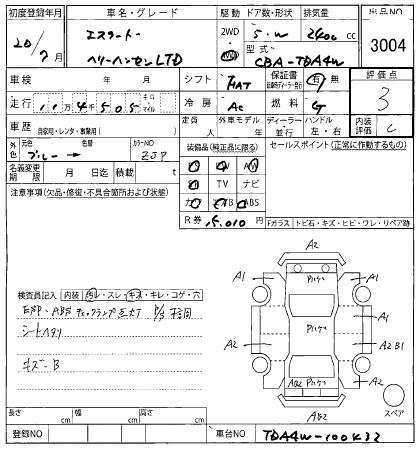 初度登録年月 車名・グレード 駆動 ドア数・形状 排気量 出品NO
20/7月 エスクード 2WD 5・W 2400cc 3004
ヘリーハンセンLTD 4WD 型式 CBA-TDA4W
車検 年 月 シフト FAT 保証書 有 無 評価点
走行 11万4505 キロ マイル 冷房 AC 燃料 G 3
車歴 自家用・レンタ・事業用( ) 定員 人 外車モデル 年 ディーラー・並行 ハンドル 左・右 内装評価 C
外色 元色 ブルー → 色替 カラーNO ZJP 装備品(純正品に限る) セールスポイント(正常に作動するもの)
名義変更期限 月 日迄 積載 t AW
注意事項(欠品・修復・不具合箇所および状態) TV ナビ
ABS
R券 15,010円 Fガラス トビ石・キズ・ヒビ・ワレ・リペア跡
A2
A1 Pハケ A1
検査員記入 内装 汚レ・スレ・キズ・キレ・コゲ・穴
ESP・ABS チェックランプ点灯
A1
シートヘタリ
A2 Pハケ A2 B1
キズ-B
A2 A2
AB2 Pハケ
AB2 スペア
長さ cm 幅 cm 高さ cm
登録NO 車台NO TDA4W-100432